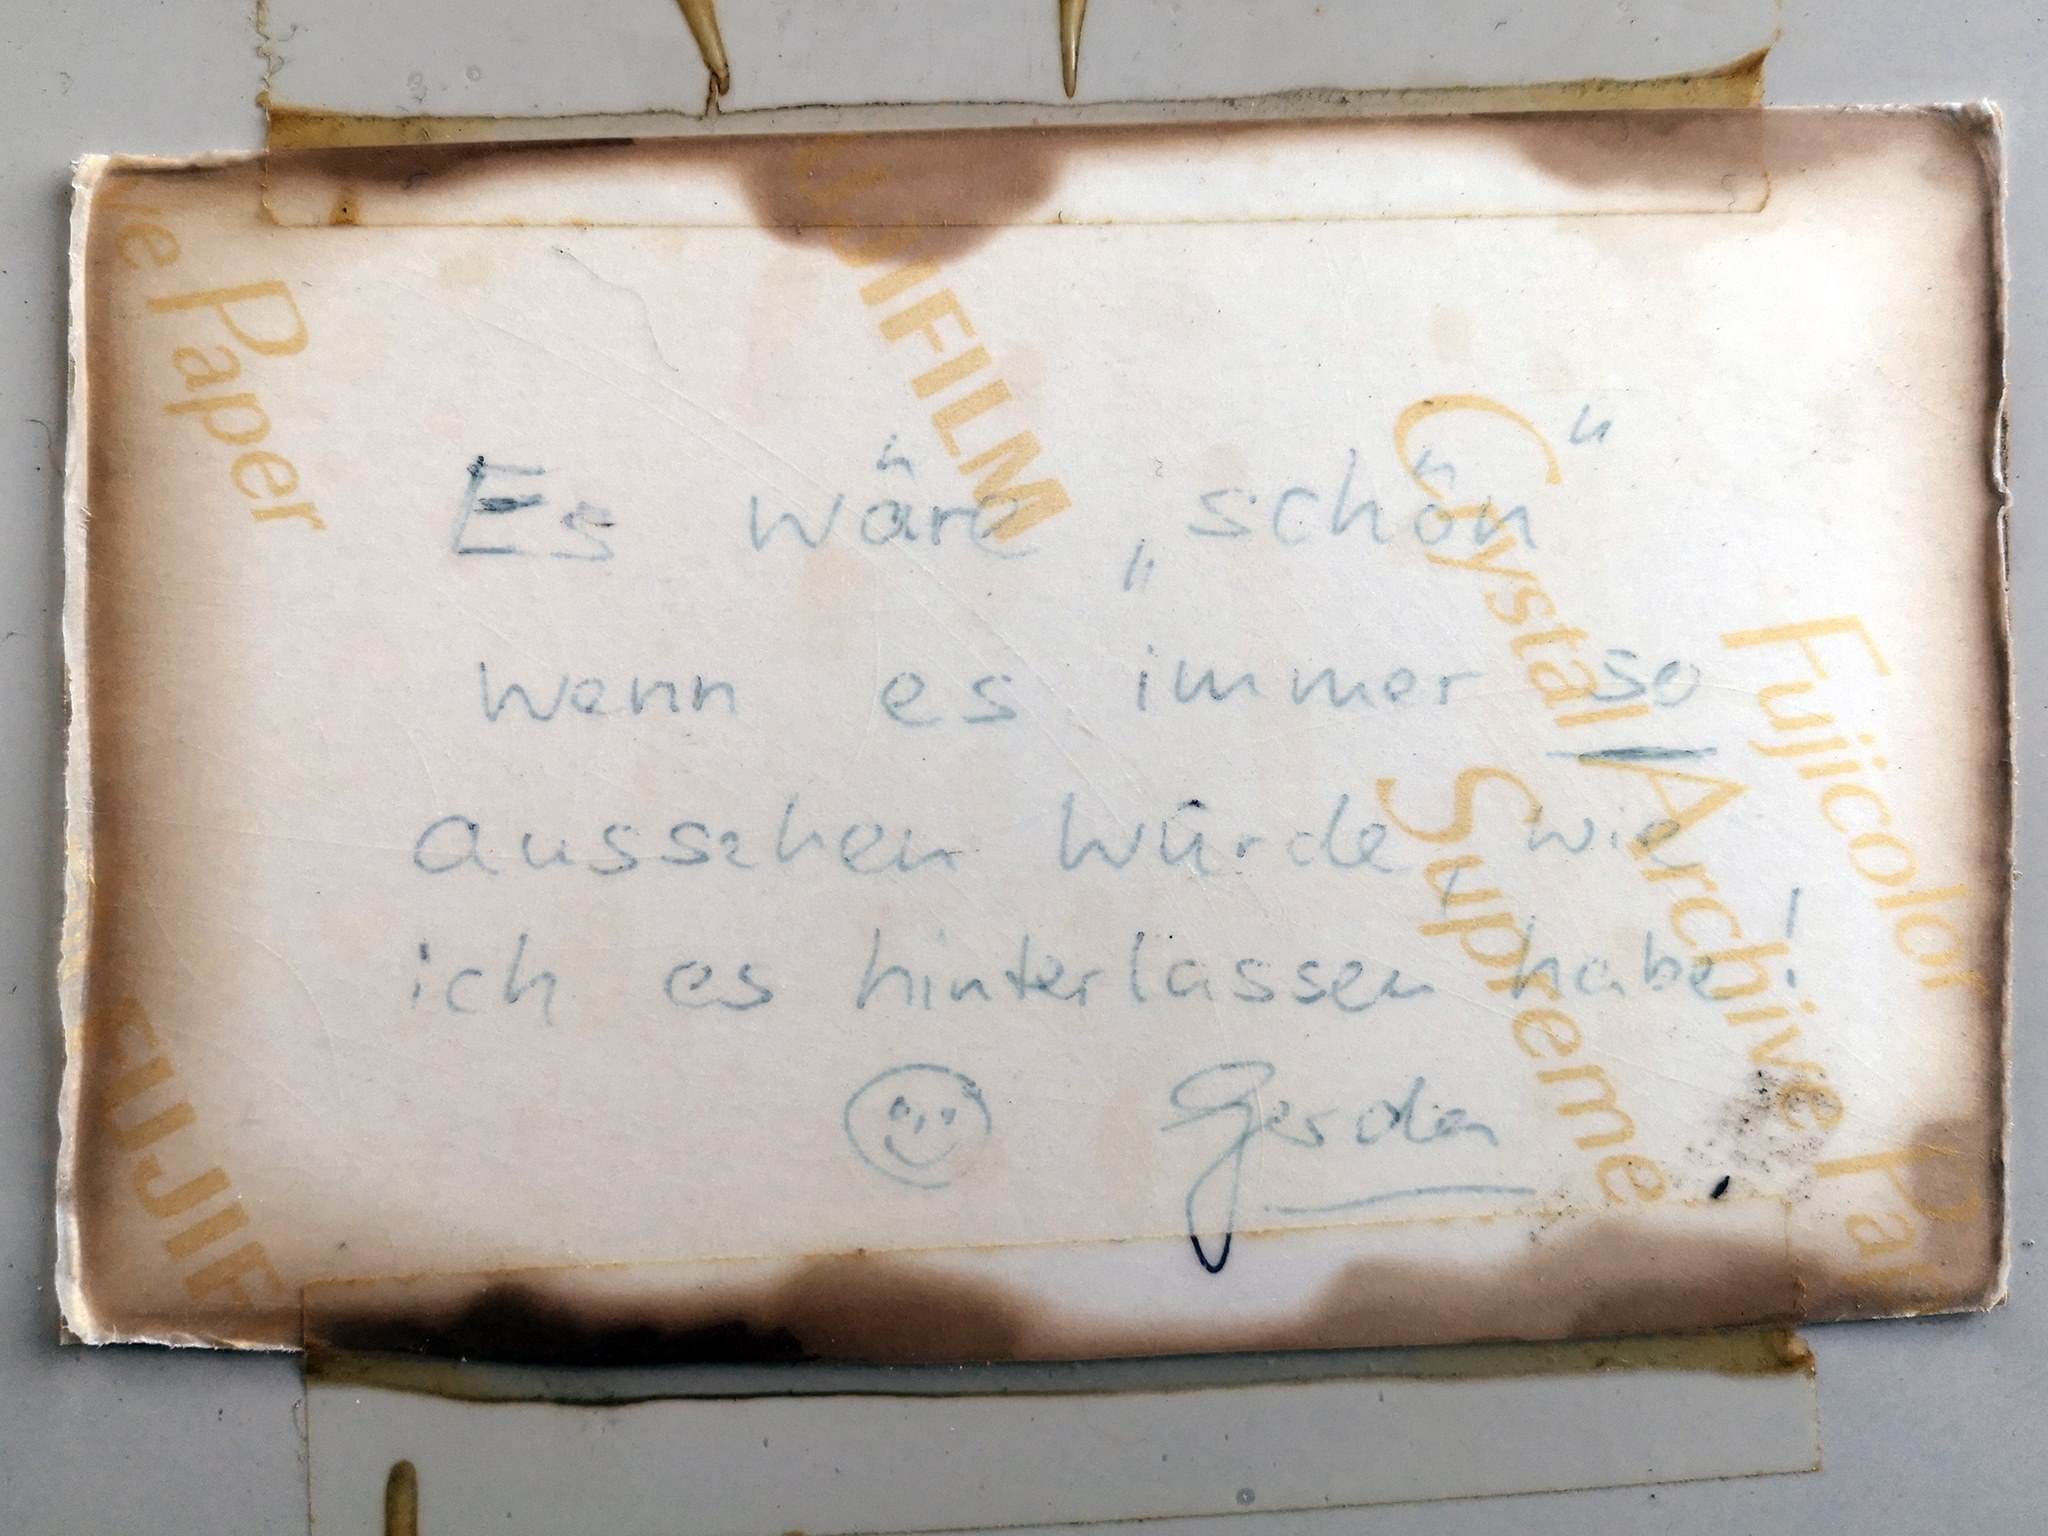 Es wäre „schön"
wenn es immer so
aussehen würde, wie
ich es hinterlassen habe!
Gerda
ve Paper
FUJIFILM
Fujicolor
Crystal Archive Pap
Supreme
FUJIF